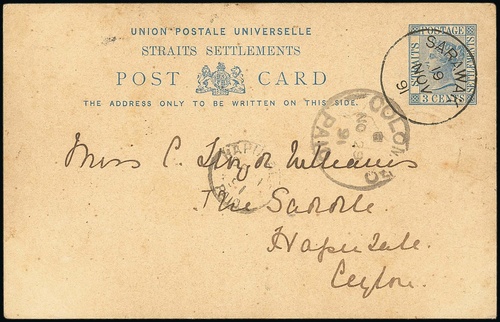 UNION POSTALE UNIVERSELLE
STRAITS SETTLEMENTS
POST CARD
THE ADDRESS ONLY TO BE WRITTEN ON THIS SIDE.
STRAITS POSTAGE SETTLEMENTS
3 CENTS
SARAWAK
19
NOV
91
COLOMBO
PAID
Miss C. Lloyd Williams
The
Haputale
Ceylon.